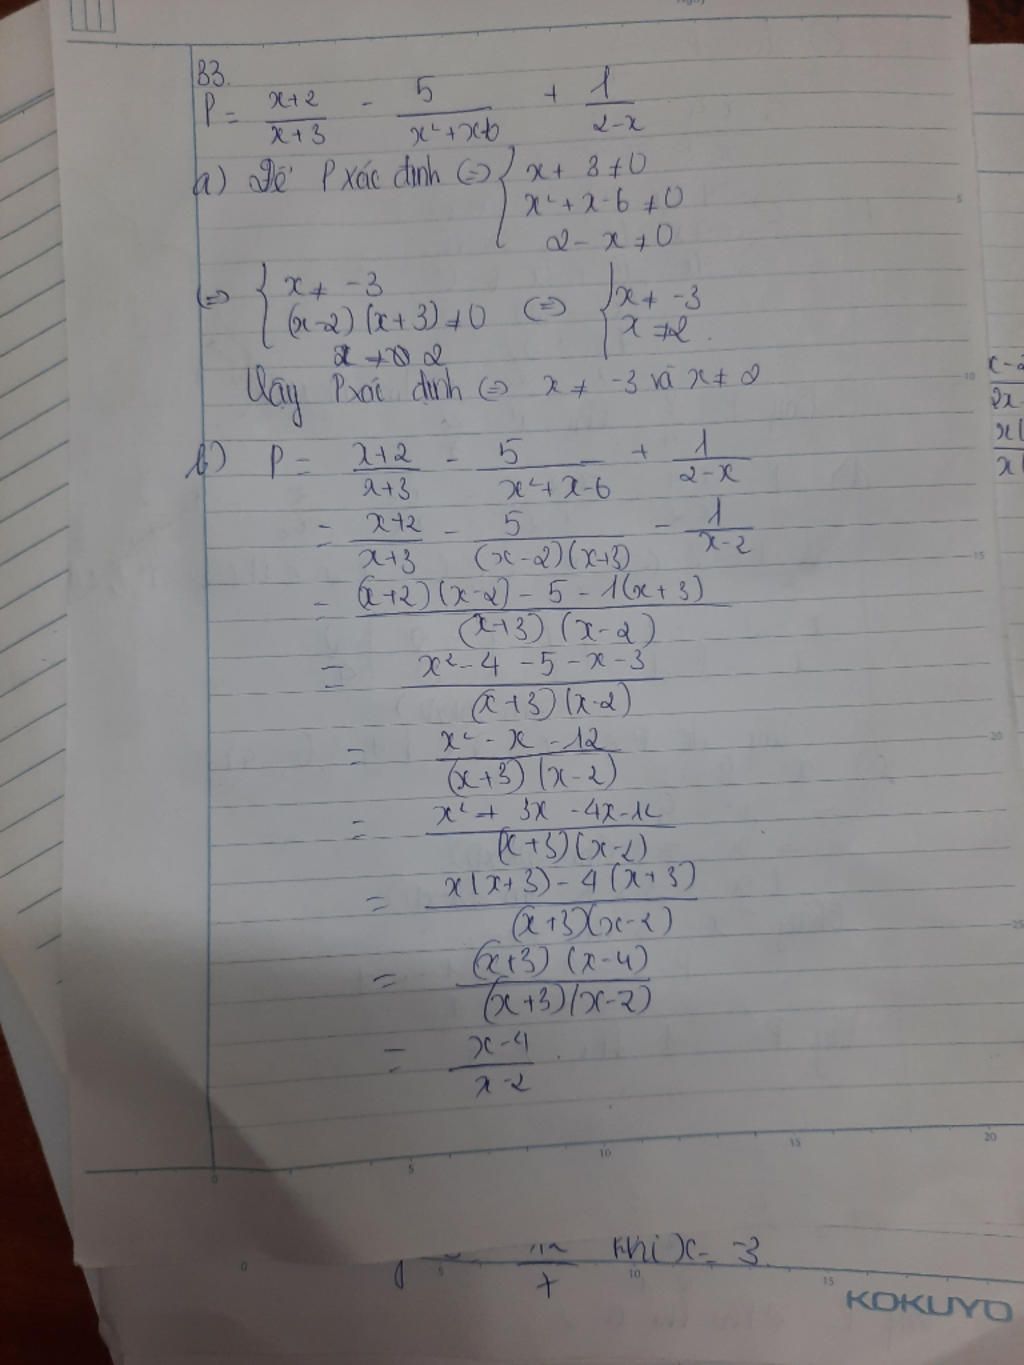 B3.
P = \frac{x+2}{x+3} - \frac{5}{x²+x-6} + \frac{1}{2-x}
a) Để P xác định <=> { x + 3 ≠ 0
x² + x - 6 ≠ 0
2 - x ≠ 0
<=> { x ≠ -3
(x-2)(x+3) ≠ 0 <=> { x ≠ -3
x ≠ 2 x ≠ 2.
Vậy P xác định <=> x ≠ -3 và x ≠ 2
b) P = \frac{x+2}{x+3} - \frac{5}{x²+x-6} + \frac{1}{2-x}
= \frac{x+2}{x+3} - \frac{5}{(x-2)(x+3)} - \frac{1}{x-2}
= \frac{(x+2)(x-2) - 5 - 1(x+3)}{(x+3)(x-2)}
= \frac{x²-4-5-x-3}{(x+3)(x-2)}
= \frac{x²-x-12}{(x+3)(x-2)}
= \frac{x²+3x-4x-12}{(x+3)(x-2)}
= \frac{x(x+3)-4(x+3)}{(x+3)(x-2)}
= \frac{(x+3)(x-4)}{(x+3)(x-2)}
= \frac{x-4}{x-2}.
0 5 10 15 20
khi x = -3.
0 5 10 15
KOKUYO